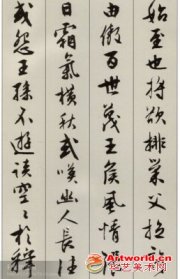 始至也将欲排巢父拉許
由傲百世蔑王侯風情張
日霜氣橫秋或嘆幽人長往
或怨王孫不遊談空〻於釋
华艺美术网